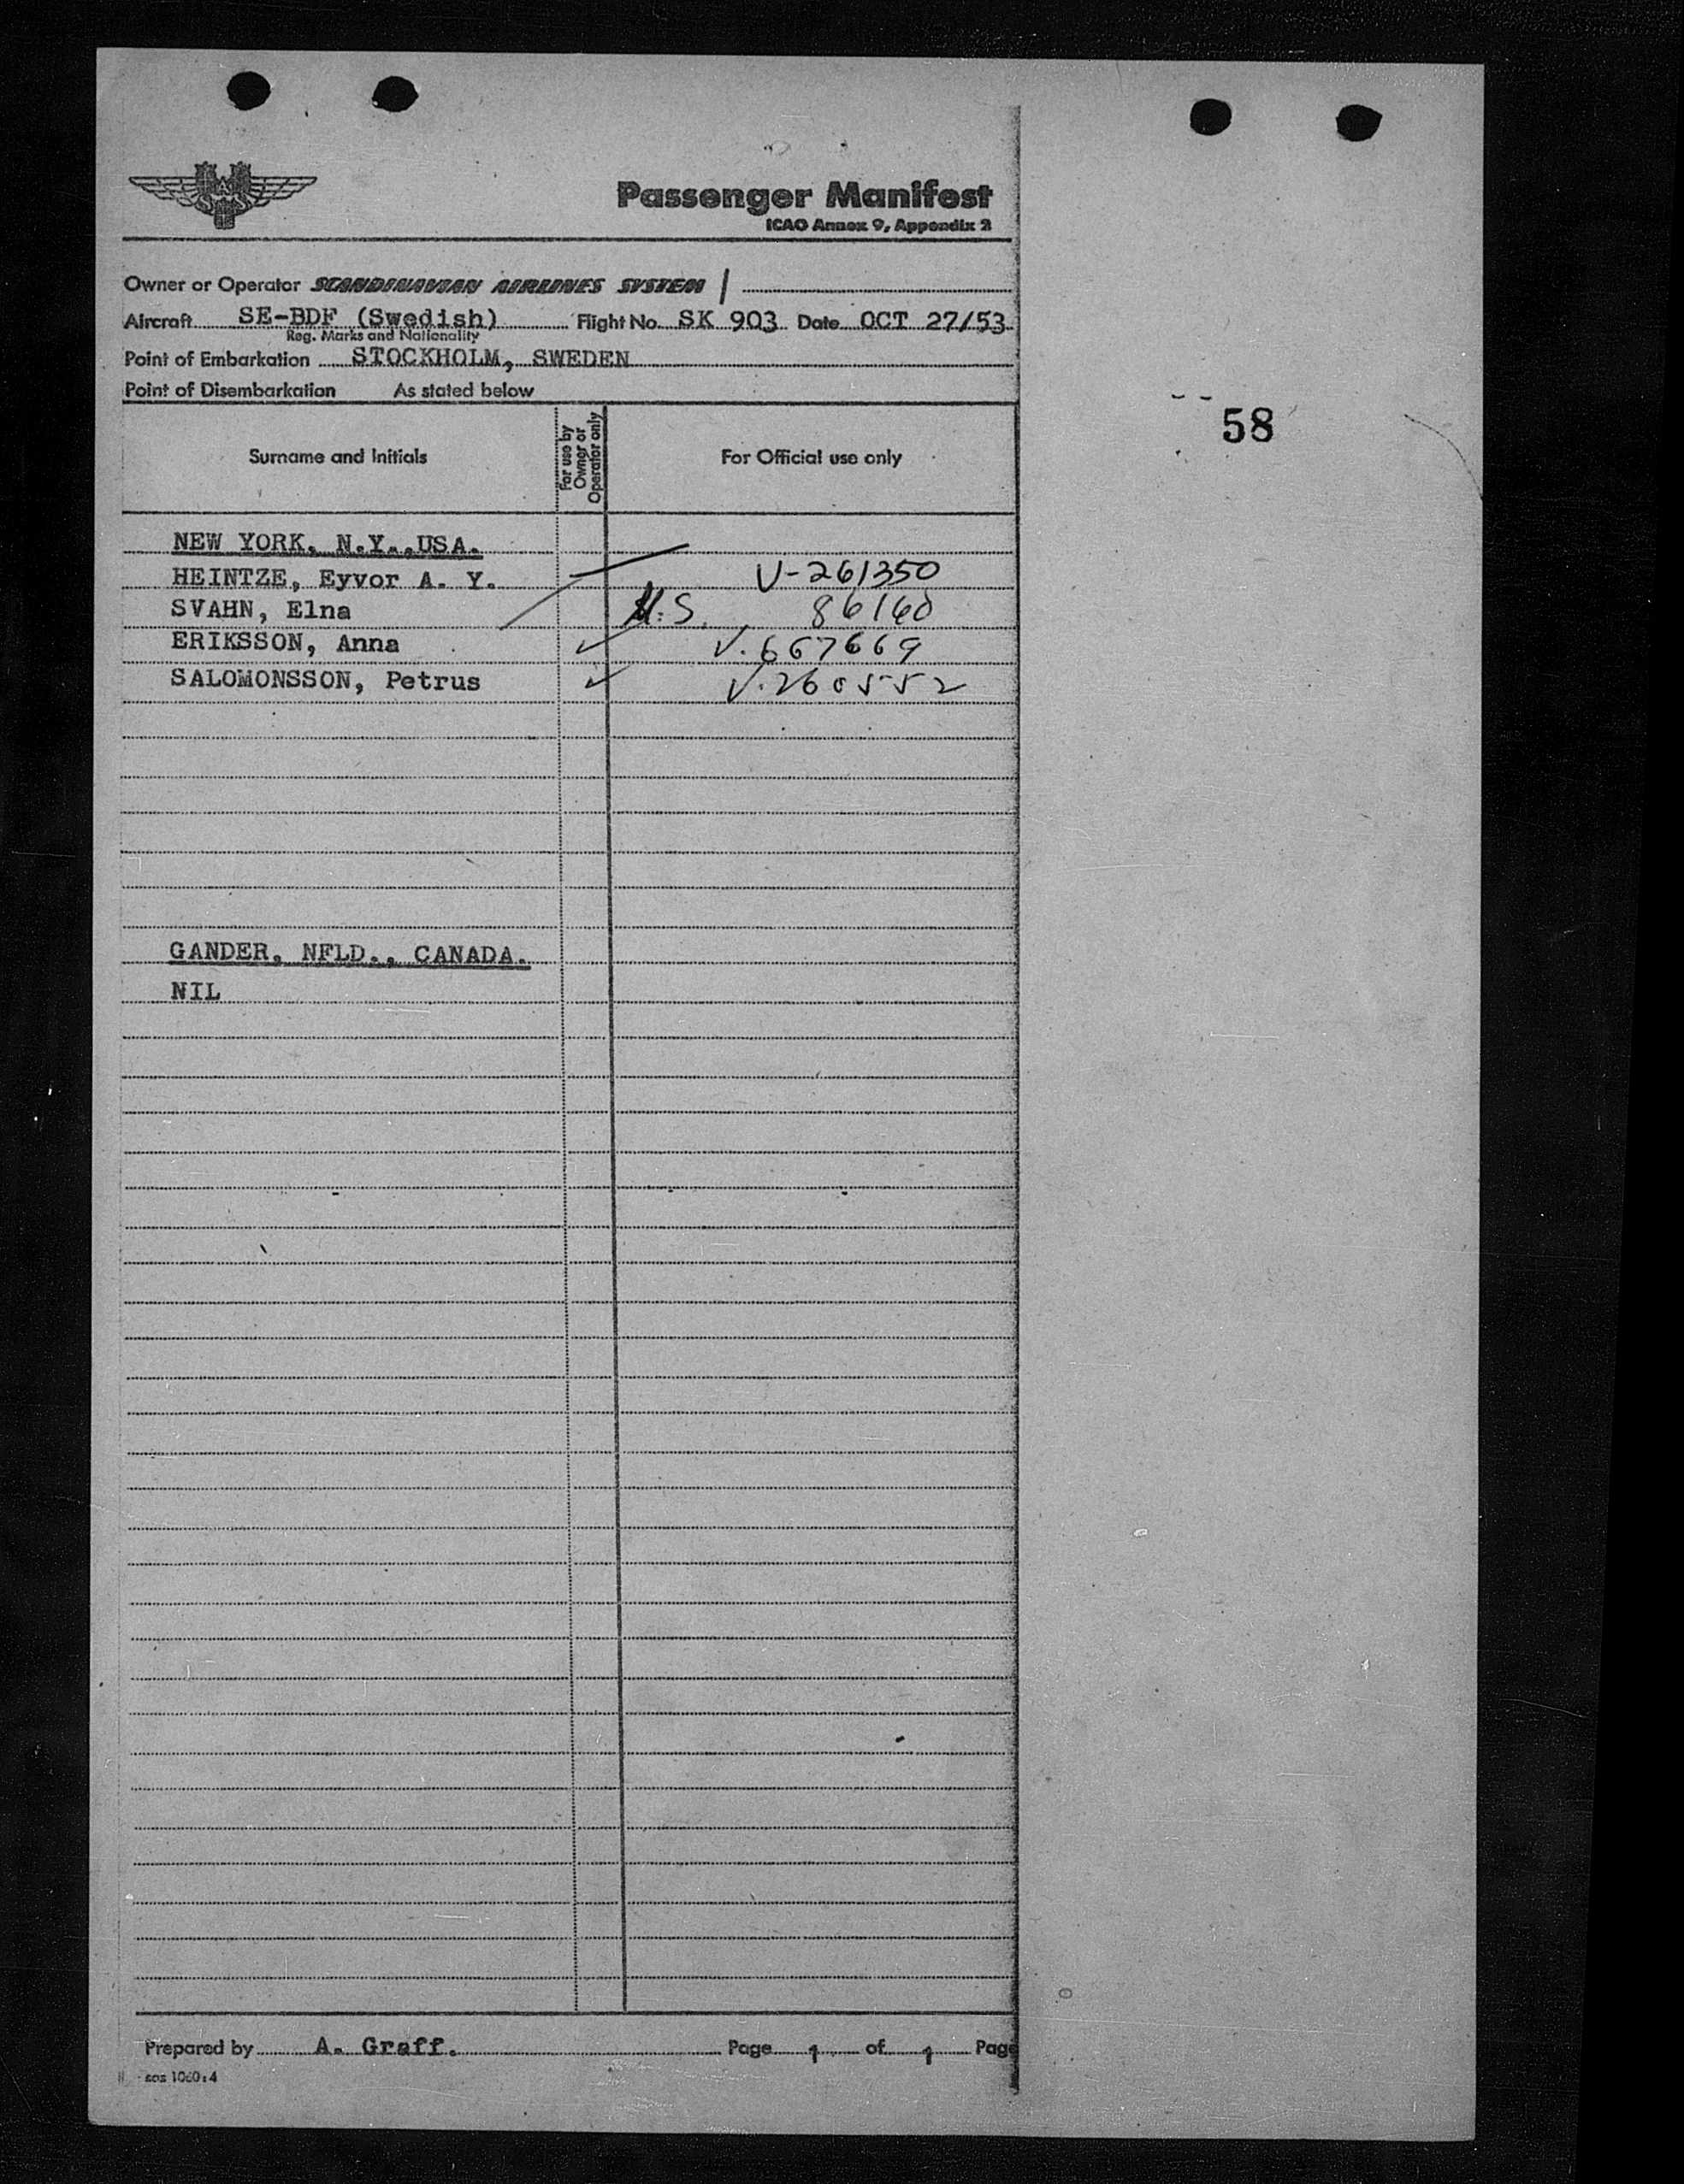 SAS
Passenger Manifest
ICAO Annex 9, Appendix 2
Owner or Operator SCANDINAVIAN AIRLINES SYSTEM
Aircraft SE-BDF (Swedish) Flight No. SK 903 Date OCT 27/53
Reg. Marks and Nationality
Point of Embarkation STOCKHOLM, SWEDEN
Point of Disembarkation As stated below
58
Surname and Initials
For use by Owner or Operator only
For Official use only
NEW YORK, N.Y.,USA.
HEINTZE, Eyvor A. Y. V-261350
SVAHN, Elna U.S. 86160
ERIKSSON, Anna ✓ V.667669
SALOMONSSON, Petrus ✓ V.260552
GANDER, NFLD., CANADA.
NIL
Prepared by A. Graff. Page 1 of 1 Page
sas 1060:4